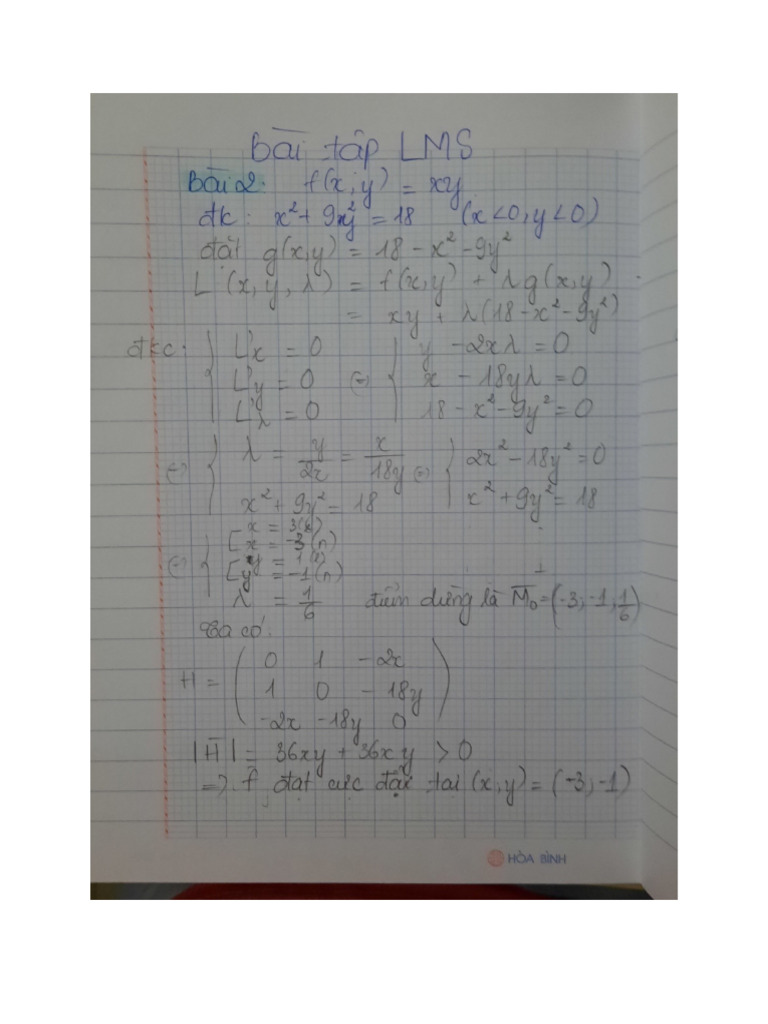 Bài tập LMS
Bài 2: f(x,y) = xy
đk: x² + 9y² = 18 (x<0, y<0)
đặt g(x,y) = 18 - x² - 9y²
L (x, y, λ) = f(x,y) + λg(x,y)
= xy + λ(18 - x² - 9y²)
đkc: { L'x = 0
L'y = 0
L'λ = 0 ⇔ { y - 2xλ = 0
x - 18yλ = 0
18 - x² - 9y² = 0
⇔ { λ = y/2x = x/18y
x² + 9y² = 18 ⇔ { 2x² - 18y² = 0
x² + 9y² = 18
⇔ { [ x = 3 (l)
x = -3 (n)
[ y = 1 (l)
y = -1 (n)
λ = 1/6 điểm dừng là M₀ = (-3, -1, 1/6)
Ta có:
H = ( 0 1 -2x
1 0 -18y
-2x -18y 0 )
|H̄| = 36xy + 36xy > 0
=> f đạt cực đại tại (x,y) = (-3, -1)
HÒA BÌNH